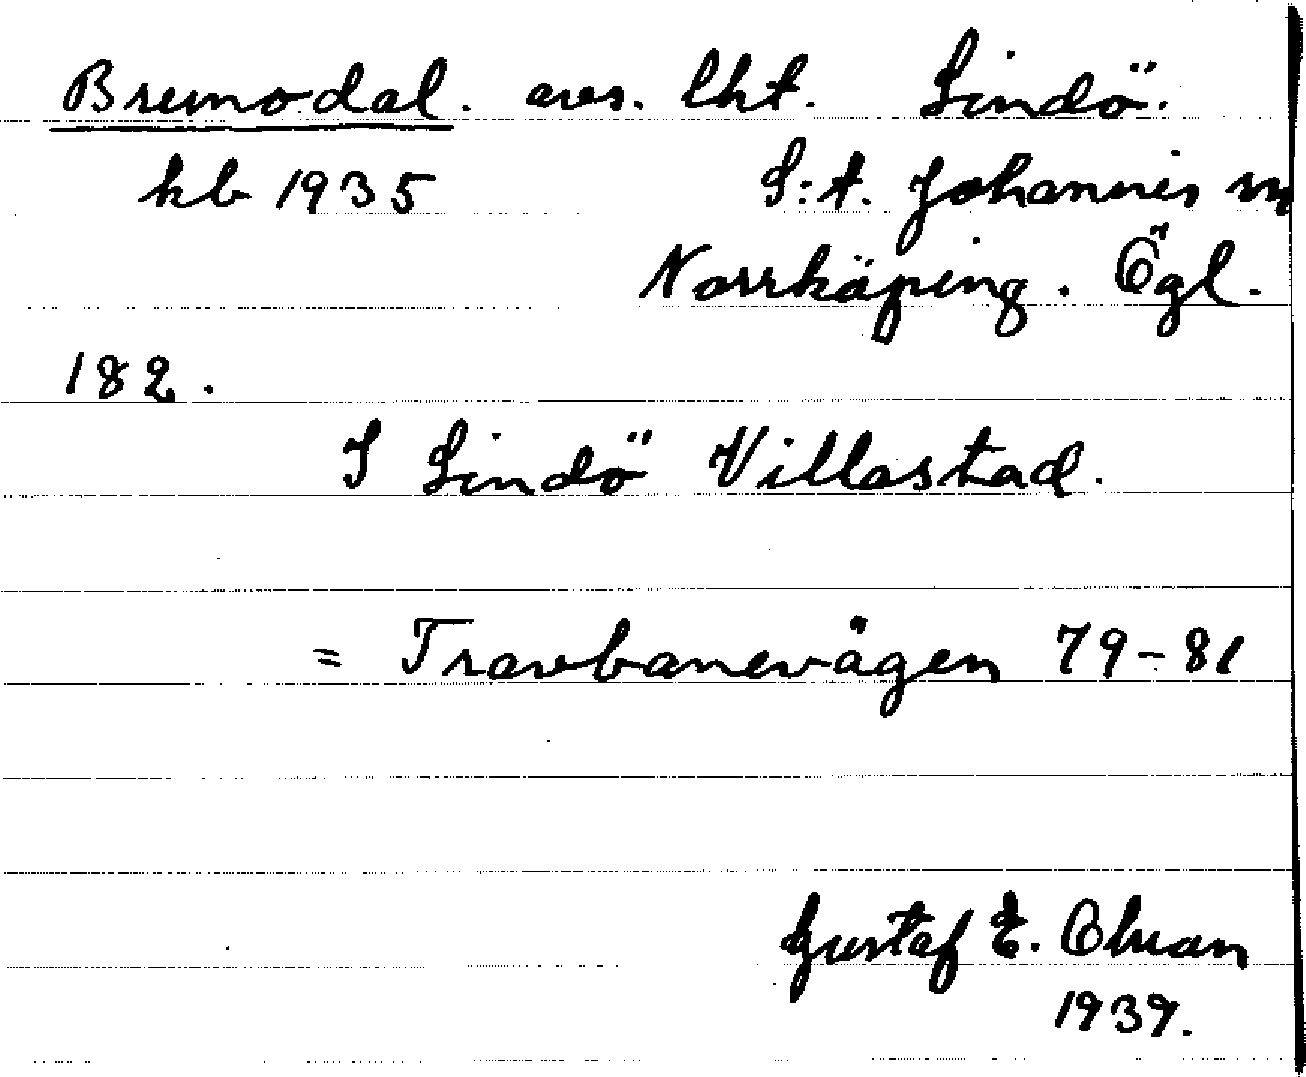 Brunodal. avs. lht. Lindö.
kb 1935 S:t. Johannes sn
Norrköping. Ögl.
182.
I Lindö Villastad.
= Travbanevägen 79-81
Gustaf E. Ohman
1939.